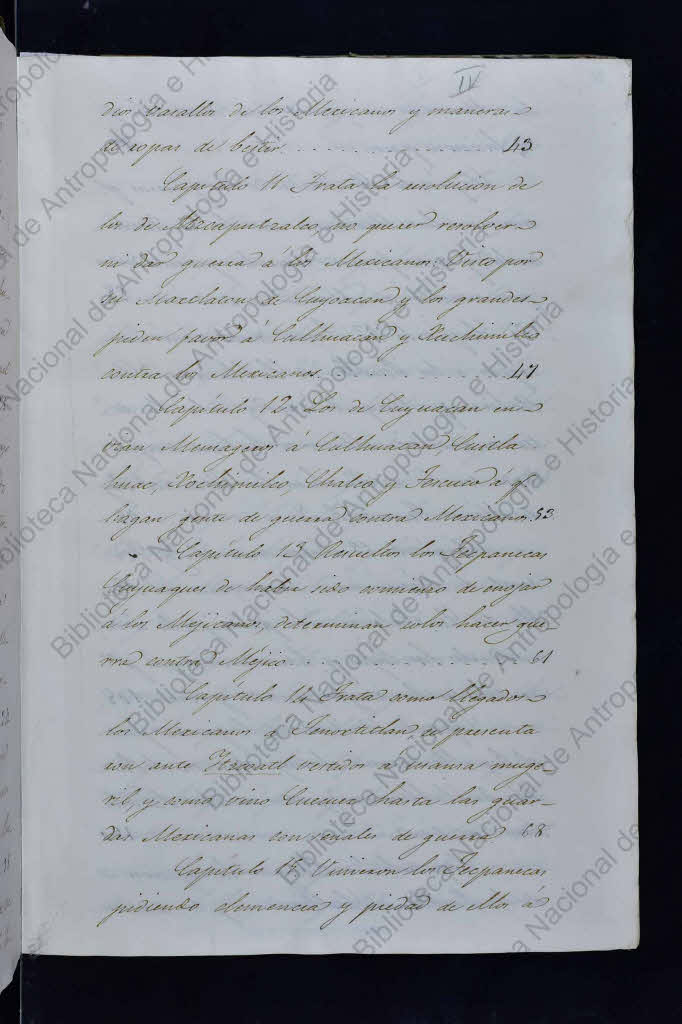 IV
dios vasallos de los Mexicanos y maneras
de ropas de bestir. . . . . . . . . . . . . . . 43
Capítulo 11 Trata la resolucion de
los de Atzcaputzalco, no querer resolver
ni dar guerra á los Mexicanos: Visto por
Maxtlaton de Cuyoacan y los grandes
piden favor á Culhuacan y Xuchimilco
contra los Mexicanos. . . . . . . . . . . . . 47
Capítulo 12 Los de Cuyuacan en-
vian Mensageros á Culhuacan, Cuitla
huac, Xochimilco, Chalco y Tescuco á q.
hagan gente de guerra contra Mexicanos. 53
Capítulo 13 Resueltos los Tecpanecas
Cuyuaques de haber sido comienzo de enojar
á los Mejicanos, determinan solos hacer gue-
rra contra Méjico. . . . . . . . . . . . . . . 61
Capítulo 14 Trata como llegados
los Mexicanos á Tenoxtitlan, se presenta
ron ante Itzcoatl vestidos á usansa muge-
ril, y como vino Cuecuex hasta las guar-
das Mexicanas con señales de guerra 68
Capítulo 15 Vinieron los Tecpanecas
pidiendo clemencia y piedad de ellos á
Biblioteca Nacional de Antropología e Historia